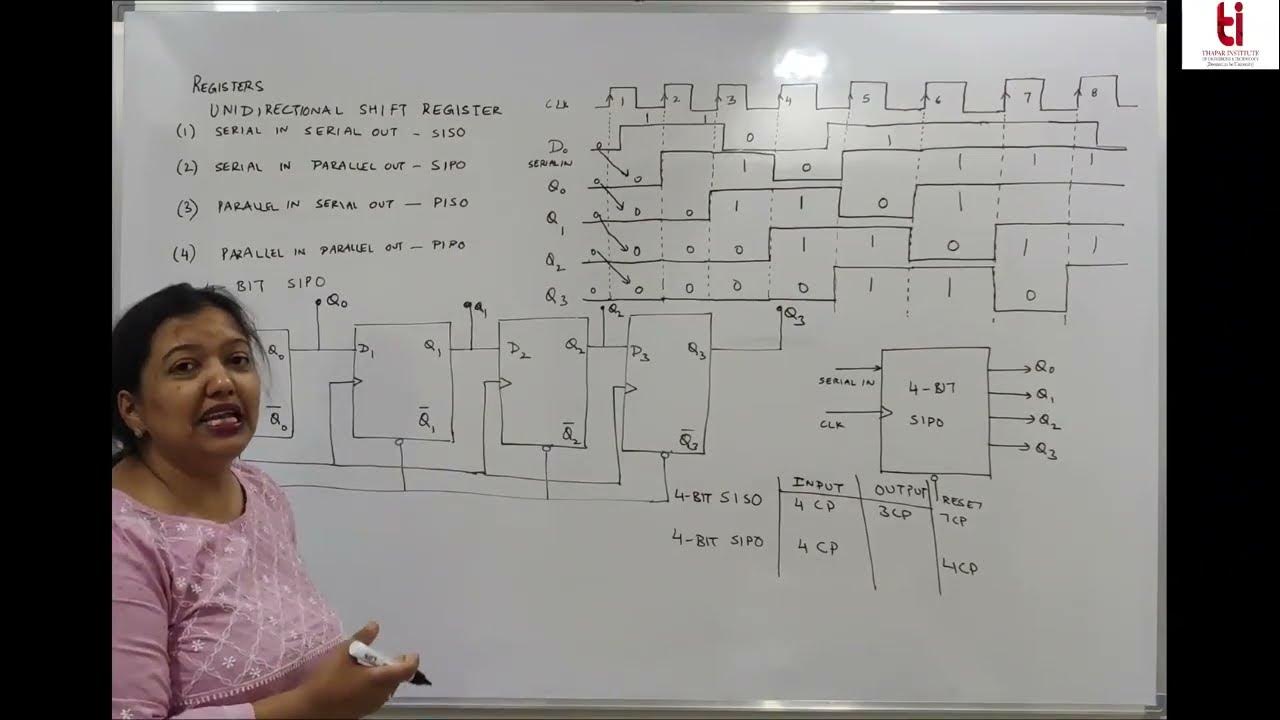 ti
THAPAR INSTITUTE
OF ENGINEERING & TECHNOLOGY
(Deemed to be University)
REGISTERS
UNIDIRECTIONAL SHIFT REGISTER
(1) SERIAL IN SERIAL OUT - SISO
(2) SERIAL IN PARALLEL OUT - SIPO
(3) PARALLEL IN SERIAL OUT — PISO
(4) PARALLEL IN PARALLEL OUT - PIPO
BIT SIPO
CLK 1 2 3 4 5 6 7 8
1 1
D₀ 0 0 1
SERIAL IN
Q₀ 0 0 1 0 1 1 1
Q₁ 0 0 0 1 1 0 1
Q₂ 0 0 0 0 1 1 0 1 1
Q₃ 0 0 0 0 0 1 1 0
Q₀ Q₁ Q₂ Q₃
Q₀ D₁ Q₁ D₂ Q₂ D₃ Q₃
Q̅₀ Q̅₁ Q̅₂ Q̅₃
SERIAL IN
CLK
4-BIT
SIPO
Q₀
Q₁
Q₂
Q₃
RESET
INPUT OUTPUT
4-BIT SISO 4 CP 3CP 7CP
4-BIT SIPO 4 CP 4CP